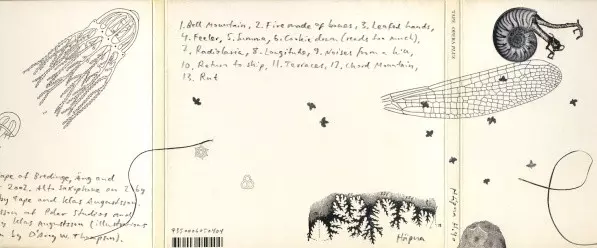 1. Bell Mountain, 2. Five made of bones, 3. Leafed hands,
4. Feeler, 5. Summa, 6. Cookie down (reads too much),
7. Radiolaria, 8. Longitude, 9. Noises from a hill,
10. Return to ship, 11. Terraces, 12. Chord Mountain,
13. Rut
Tape of Bredinge, Äng and
2002. Alto Saxophone on 2 by
by Tape and Klas Augustsson.
at Polar Studios and
Klas Augustsson (illustrations
by D'Arcy W. Thompson).
Häpna
Häpna H.